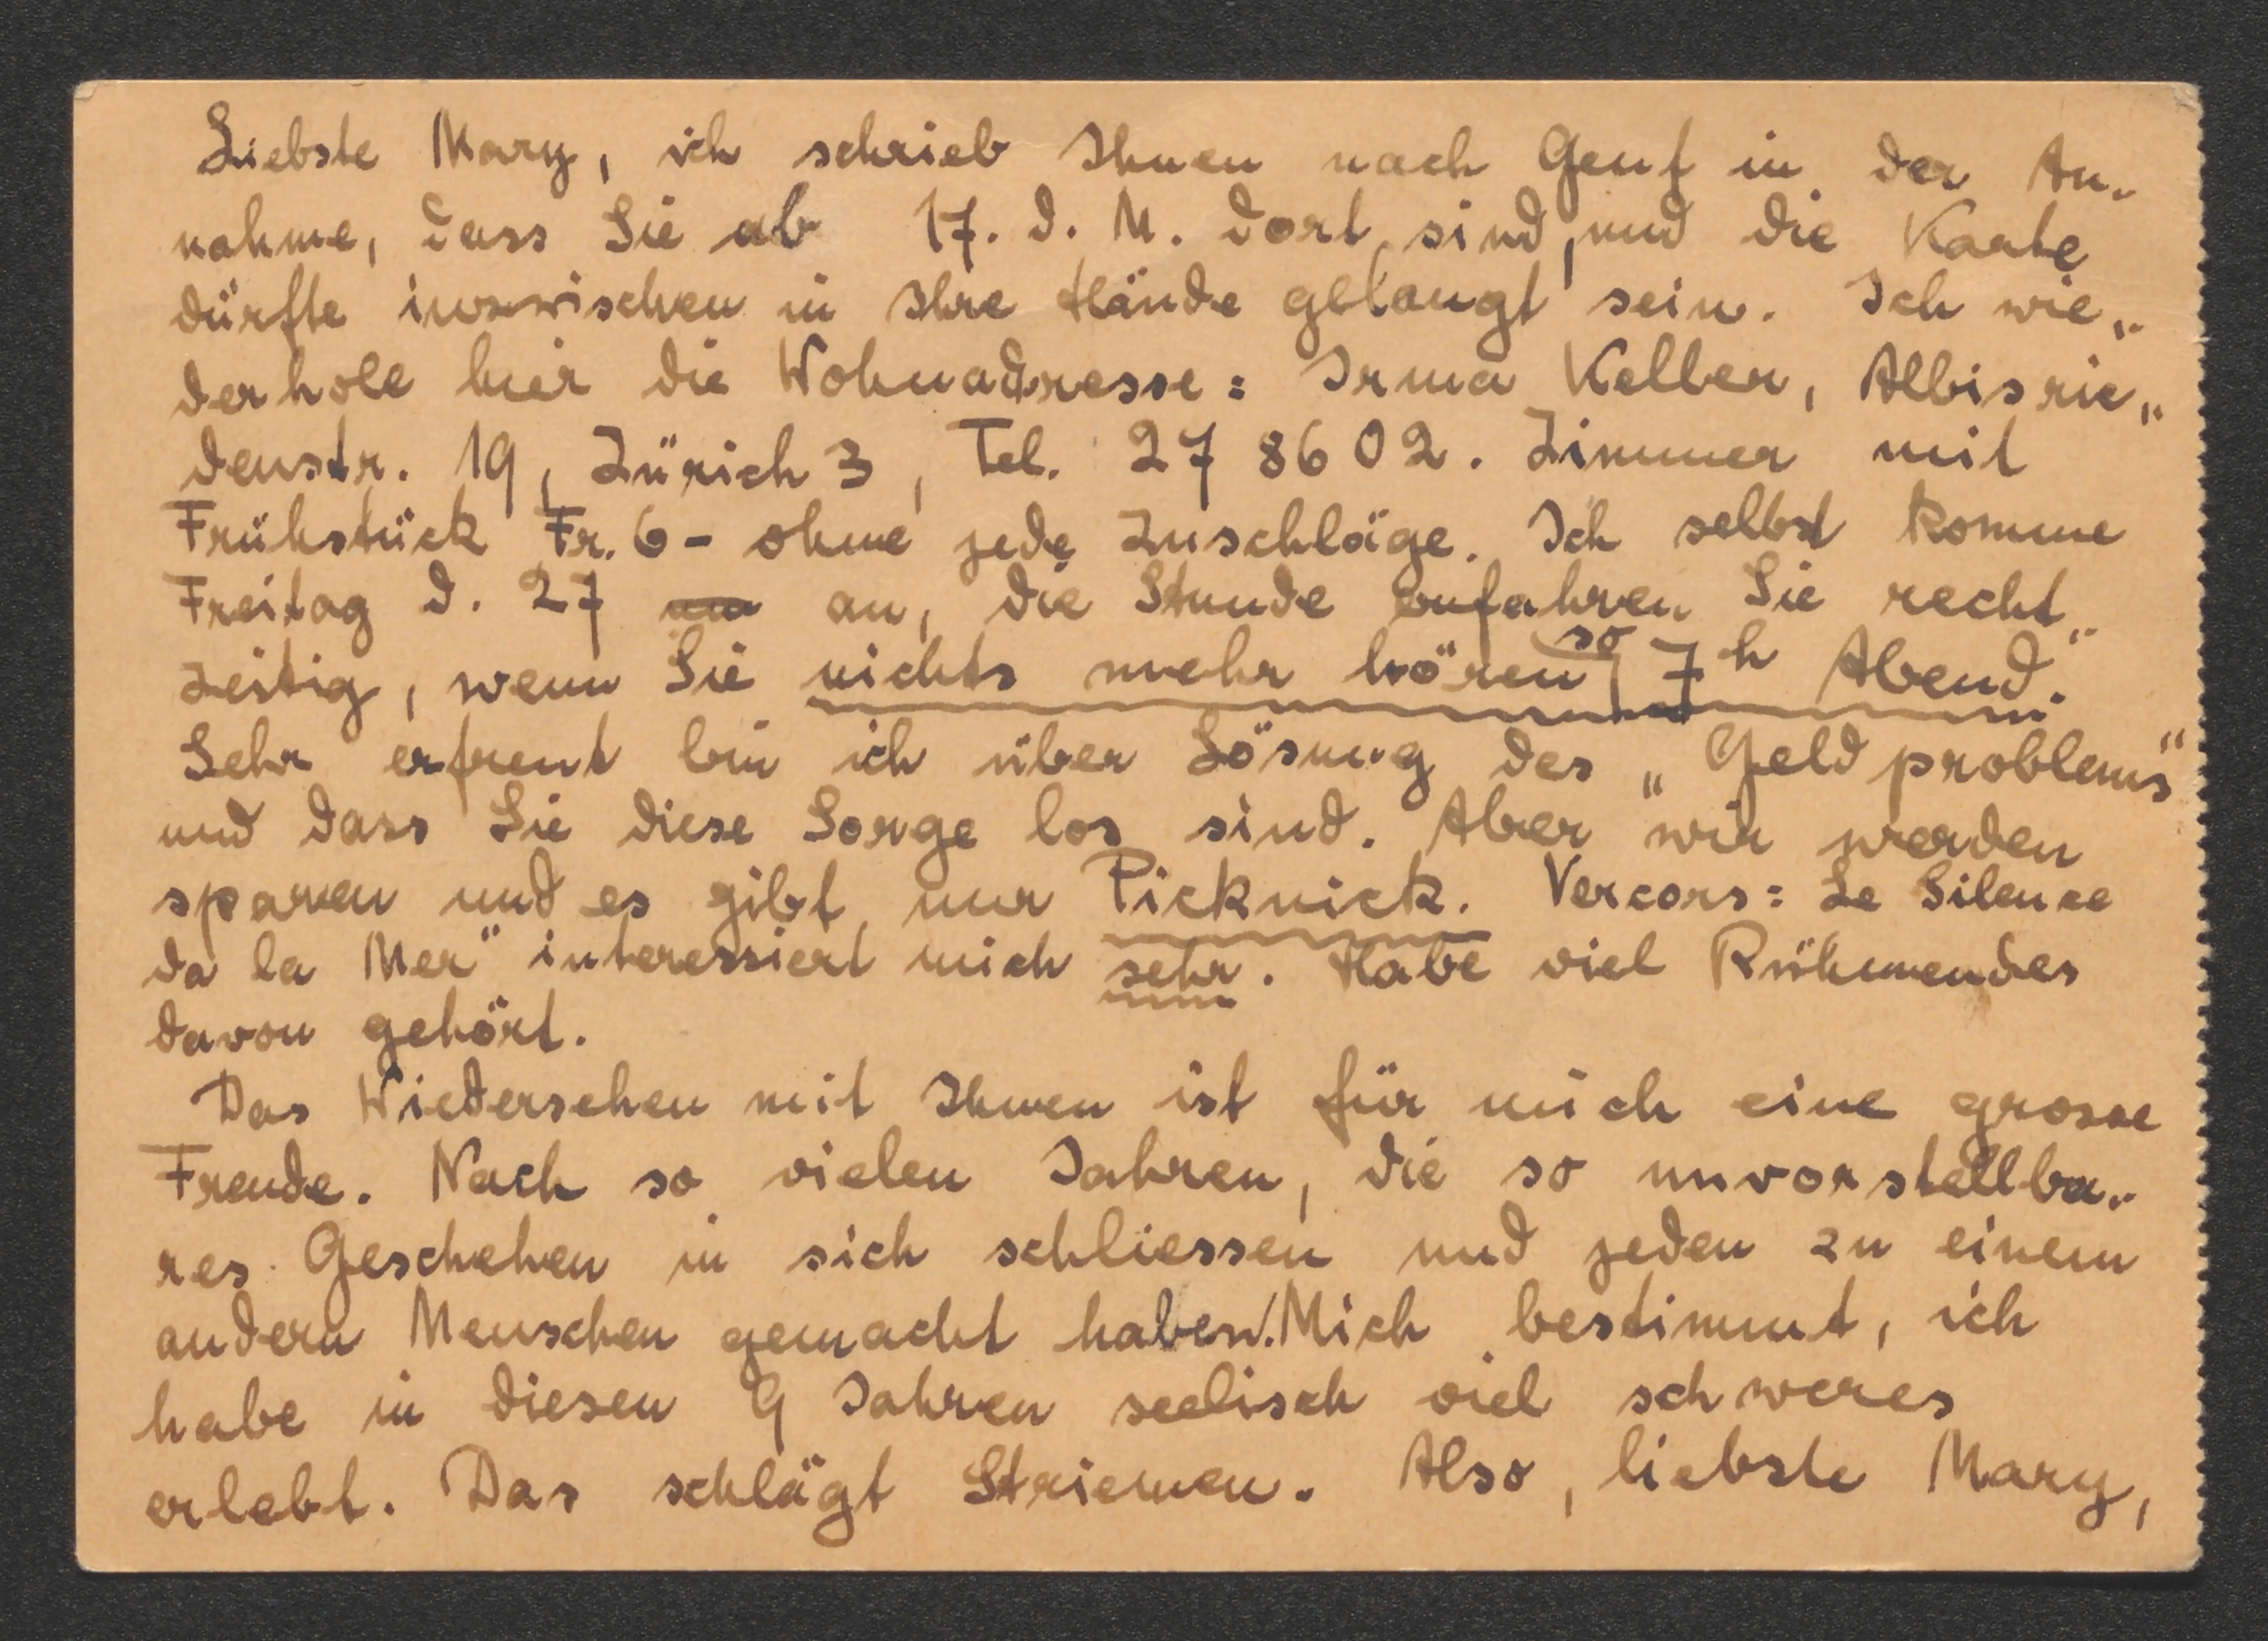 Liebste Mary, ich schrieb Ihnen nach Genf in der An-
nahme, dass Sie ab 17. d. M. dort sind, und die Karte
dürfte inzwischen in Ihre Hände gelangt sein. Ich wie„
derhole hier die Wohnadresse: Irma Keller, Albisrie„
denstr. 19, Zürich 3, Tel. 27 86 02. Zimmer mit
Frühstück Fr. 6- ohne jede Zuschläge. Ich selbst komme
Freitag d. 27 an, die Stunde erfahren Sie recht„
zeitig, wenn Sie nichts mehr hören, so 7h Abend.
Sehr erfreut bin ich über Lösung des „Geldproblems"
und dass Sie diese Sorge los sind. Aber wir werden
sparen und es gibt nur Picknick. Vercors: Le Silence
da la Mer" interessiert mich sehr. Habe viel Rühmendes
davon gehört.
Das Wiedersehen mit Ihnen ist für mich eine grosse
Freude. Nach so vielen Jahren, die so unvorstellba„
res Geschehen in sich schliessen und jeden zu einem
andern Menschen gemacht haben. Mich bestimmt, ich
habe in diesen 9 Jahren seelisch viel schweres
erlebt. Das schlägt Striemen. Also, liebste Mary,